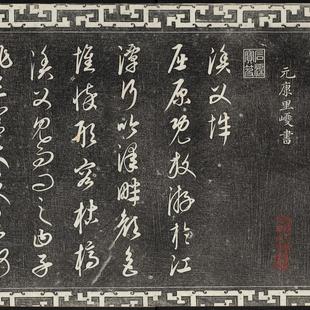 元康里巎書
漁父辭
屈原既放游於江
潭行吟澤畔顏色
憔悴形容枯槁
漁父見而問之曰子